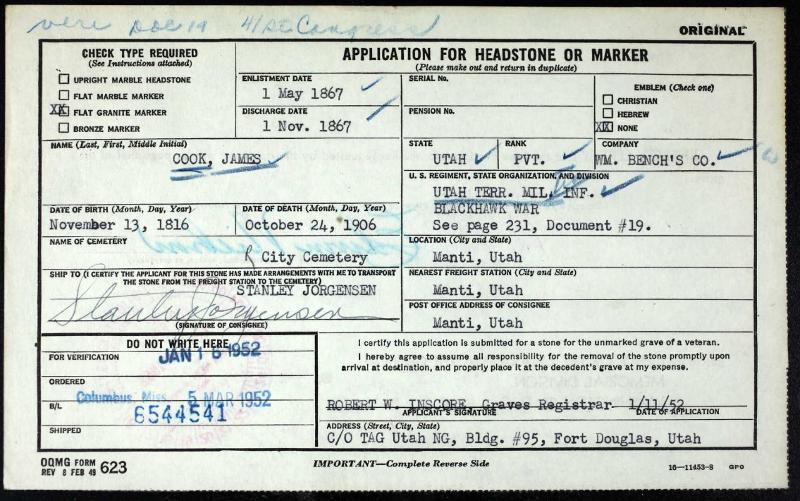 veri Doc 19 41st Congress
ORIGINAL
CHECK TYPE REQUIRED
(See Instructions attached)
UPRIGHT MARBLE HEADSTONE
FLAT MARBLE MARKER
XX FLAT GRANITE MARKER
BRONZE MARKER
ENLISTMENT DATE
1 May 1867
DISCHARGE DATE
1 Nov. 1867
APPLICATION FOR HEADSTONE OR MARKER
(Please make out and return in duplicate)
SERIAL No.
PENSION No.
EMBLEM (Check one)
CHRISTIAN
HEBREW
XX NONE
NAME (Last, First, Middle Initial)
COOK, JAMES
STATE
UTAH
RANK
PVT.
COMPANY
WM. BENCH'S CO.
U. S. REGIMENT, STATE ORGANIZATION, AND DIVISION
UTAH TERR. MIL, INF.
BLACKHAWK WAR
See page 231, Document #19.
DATE OF BIRTH (Month, Day, Year)
November 13, 1816
DATE OF DEATH (Month, Day, Year)
October 24, 1906
NAME OF CEMETERY
City Cemetery
LOCATION (City and State)
Manti, Utah
SHIP TO (I CERTIFY THE APPLICANT FOR THIS STONE HAS MADE ARRANGEMENTS WITH ME TO TRANSPORT
THE STONE FROM THE FREIGHT STATION TO THE CEMETERY)
STANLEY JORGENSEN
Stanley Jorgensen
(SIGNATURE OF CONSIGNEE)
NEAREST FREIGHT STATION (City and State)
Manti, Utah
POST OFFICE ADDRESS OF CONSIGNEE
Manti, Utah
DO NOT WRITE HERE
FOR VERIFICATION
JAN 16 1952
ORDERED
Columbus, Miss. 5 MAR 1952
B/L
6544541
SHIPPED
I certify this application is submitted for a stone for the unmarked grave of a veteran.
I hereby agree to assume all responsibility for the removal of the stone promptly upon
arrival at destination, and properly place it at the decedent's grave at my expense.
ROBERT W. INSCORE, Graves Registrar 1/11/52
APPLICANT'S SIGNATURE
DATE OF APPLICATION
ADDRESS (Street, City, State)
C/O TAG Utah NG, Bldg. #95, Fort Douglas, Utah
OQMG FORM
REV 8 FEB 49 623
IMPORTANT—Complete Reverse Side
16—11453-8 GPO